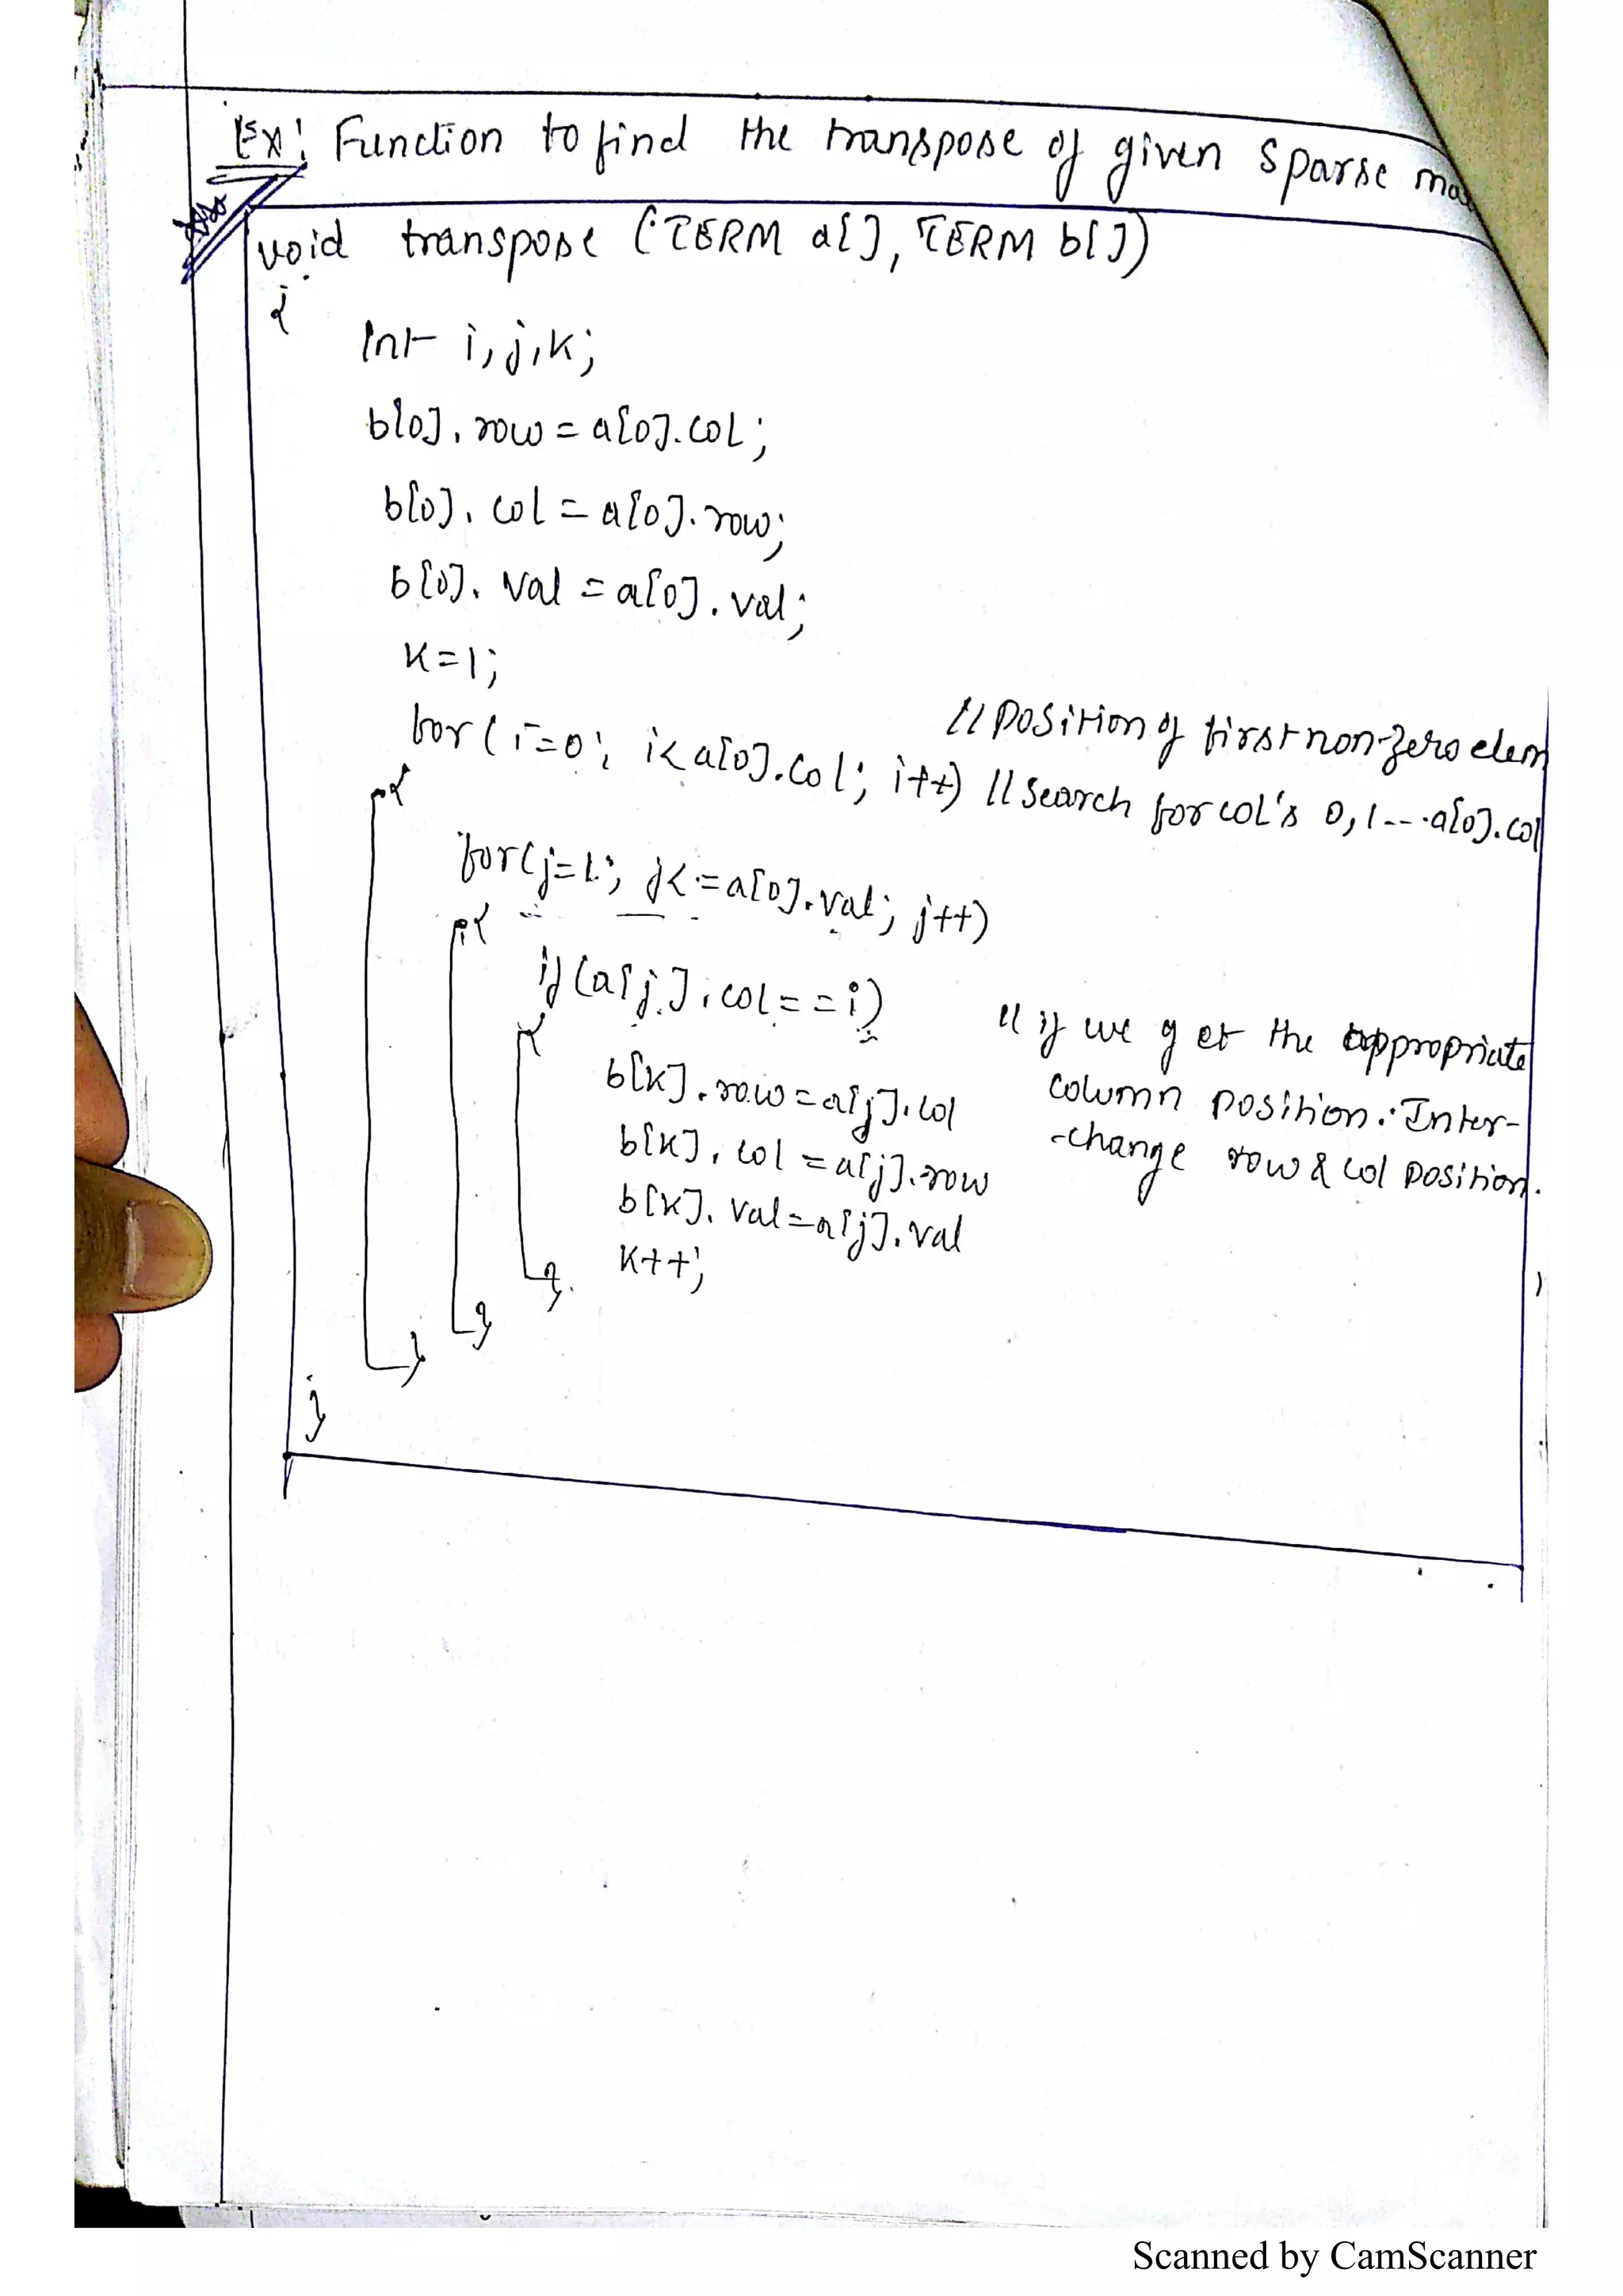 Ex: Function to find the transpose of given sparse
void transpose (TERM a[], TERM b[])
{
Int i, j, k;
b[0].row = a[0].col;
b[0].col = a[0].row;
b[0].val = a[0].val;
k=1; //position of first non-zero elem
for(i=0; i<a[0].col; i++) //search for col's 0,1---a[0].col
{
for(j=1; j<=a[0].val; j++)
{
if(a[j].col==i) //if we get the appropriate
{
b[k].row=a[j].col column position. Inter-
b[k].col=a[j].row -change row & col position.
b[k].val=a[j].val
k++;
}
}
}
}
Scanned by CamScanner